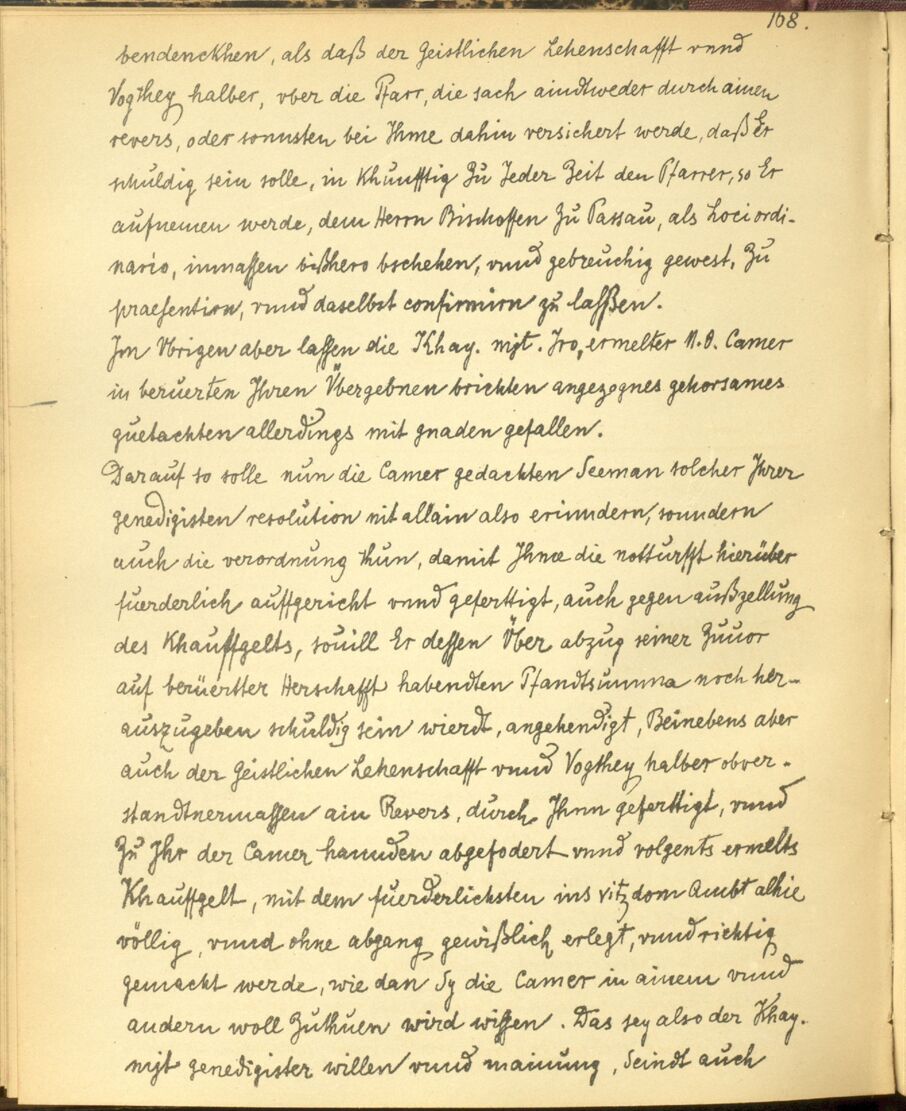 168.
bendenckhen, als daß der Geistlichen Lehenschafft vnnd
Vogthey halber, vber die Pfarr, die sach aindtweder durch ainen
revers, oder sonnsten bei Ihme dahin versichert werde, daß Er
schuldig sein solle, in Khunfftig Zu Jeder Zeit den Pfarrer, so Er
aufnemen werde, dem Herrn Bischoffen Zu Passau, als Loci ordi-
nario, inmassen bißhero bschehen, vnnd gebreuchig gewest, Zu
praesentirn, vnnd daselbst confirmirn zu laßen.
Im Vbrigen aber lassen die Khay. mjt. Iro, ermelter N.Ö. Camer
in beruerten Ihren Übergebnen brichten angezognes gehorsames
guetachten allerdings mit gnaden gefallen.
Darauf so solle nun die Camer gedachten Seeman solcher Ihrer
genedigisten resolution nit allain also erinndern, sonndern
auch die verordnung thun, damit Ihme die notturfft hierüber
fuerderlich auffgericht vnnd gefertigt, auch gegen außzellung
des Khauffgelts, souill Er dessen Über abzug seiner Zuuor
auf berüertter Herschafft habendten Pfandtsumma noch her-
auszugeben schuldig sein wierdt, angehendigt, Beinebens aber
auch der Geistlichen Lehenschafft vnnd Vogthey halber obver-
standtnermassen ain Revers, durch Ihnn geferttigt, vnnd
Zu Ihr der Camer hannden abgefodert vnnd volgents ermelts
Khauffgelt, mit dem fuerderlichsten ins vitzdom Ambt alhie
völlig, vnnd ohne abgang gewißlich erlegt, vnnd richtig
gemacht werde, wie dan Sy die Camer in ainem vnnd
andern woll Zuthuen wird wissen. Das sey also der Khay.
mjt genedigister willen vnnd mainung, Seindt auch